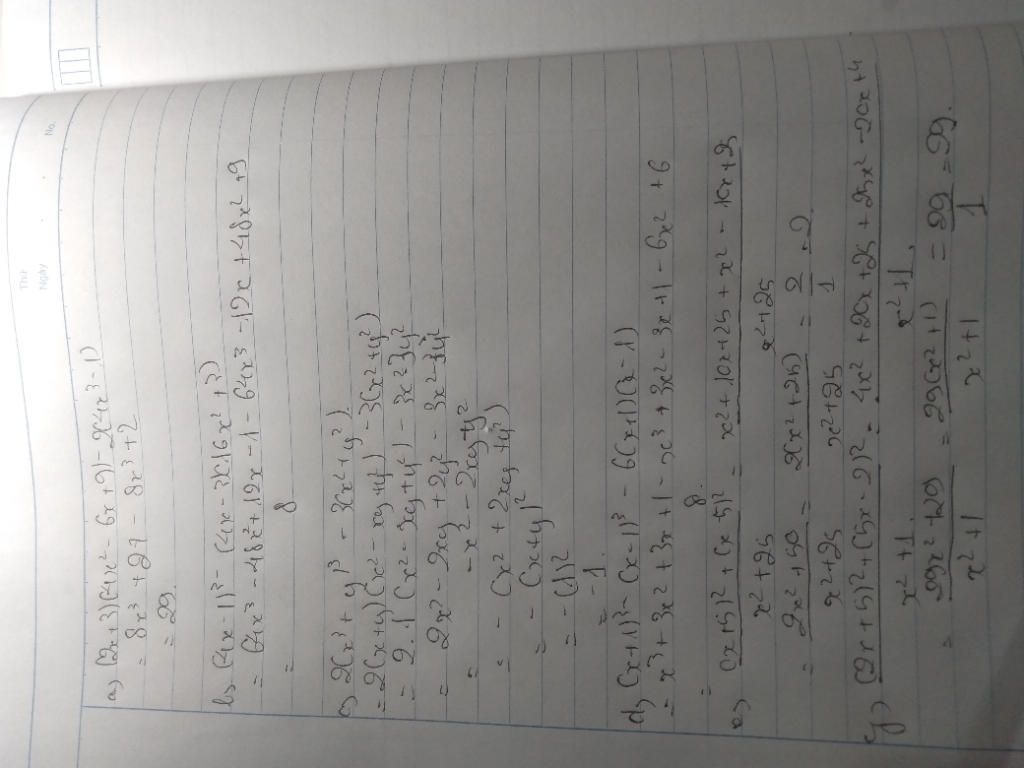 Thứ
Ngày
No.
a) (2x+3)(4x² - 6x + 9) - 2(4x³ - 1)
= 8x³ + 27 - 8x³ + 2
= 29.
b) (4x-1)³ - (4x - 3)(16x² + 3)
= 64x³ - 48x² + 12x - 1 - 64x³ - 12x + 48x² + 9
= 8
c) 2(x³ + y³) - 3(x² + y²)
= 2(x+y)(x² - xy + y²) - 3(x² + y²)
= 2.1 (x² - xy + y²) - 3x² - 3y²
= 2x² - 2xy + 2y² - 3x² - 3y²
= -x² - 2xy - y²
= - (x² + 2xy + y²)
= - (x+y)²
= -(1)²
= -1
d) (x+1)³ - (x-1)³ - 6(x+1)(x-1)
= x³ + 3x² + 3x + 1 - x³ + 3x² - 3x + 1 - 6x² + 6
= 8.
e) (x+5)² + (x-5)² / x² + 25 = x² + 10x + 25 + x² - 10x + 25 / x² + 25
= 2x² + 50 / x² + 25 = 2(x² + 25) / x² + 25 = 2 / 1 = 2
g) (2x+5)² + (5x-2)² / x² + 1 = 4x² + 20x + 25 + 25x² - 20x + 4 / x² + 1
= 29x² + 29 / x² + 1 = 29(x² + 1) / x² + 1 = 29 / 1 = 29.